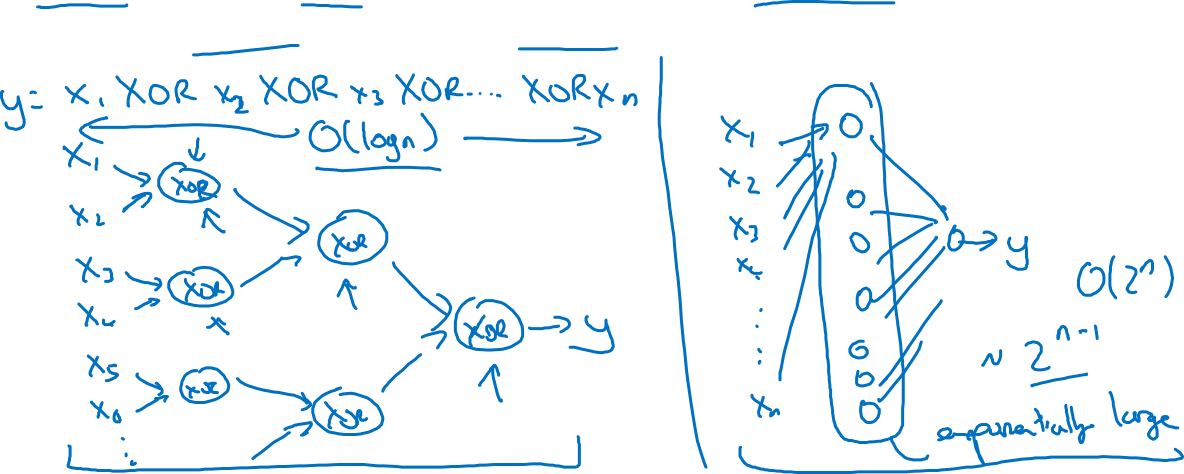 y= x1 XOR x2 XOR x3 XOR.... XOR xn
O(logn)
x1
XOR
x2
XOR
x3
XOR
x4
XOR
y
x5
XOR
x6
XOR
x1
x2
x3
x4
xn
y
O(2^n)
~ 2^n-1
exponentially large